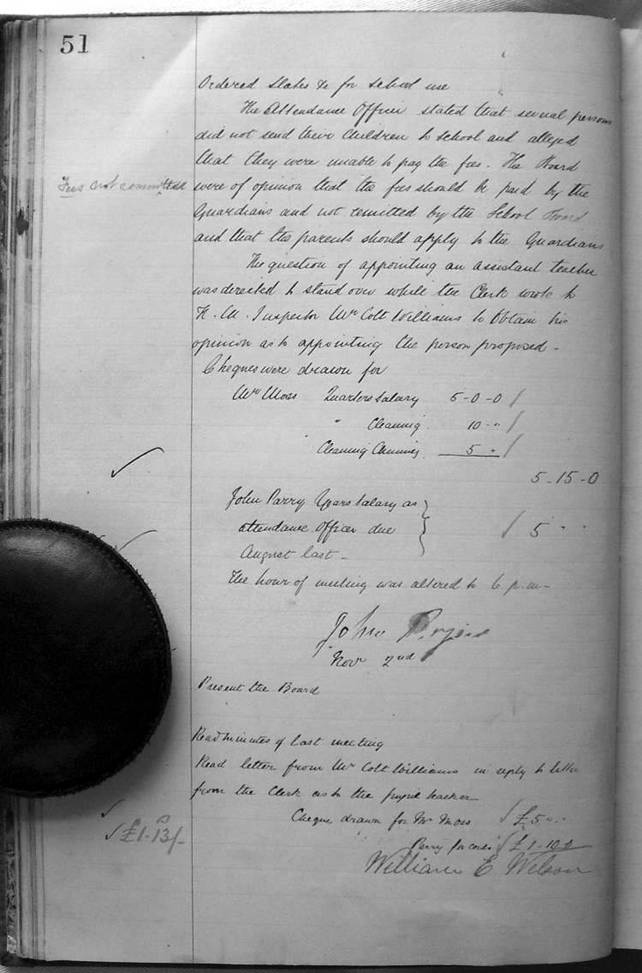 51
Ordered Slates &c for School use
The Attendance Officer stated that several persons
did not send their Children to School and alleged
that they were unable to pay the fees. The Board
Fees not
were of opinion that the fees should be paid by the
Guardians and not remitted by the School Board
and that the parents should apply to the Guardians
The question of appointing an assistant teacher
was directed to stand over while the Clerk wrote to
H. M. Inspector Mr Colt Williams to obtain his
opinion as to appointing the person proposed -
Cheques were drawn for
Moss Quarters Salary 5-0-0 /
" Cleaning 10 - " /
" Cleaning Chimney 5 " /
5-15-0
John Parry Years Salary as
attendance Officer due / 5 " "
August last -
The hour of meeting was altered to 6 p.m -
John
Nov 2nd
Present the Board
Read minutes of last meeting
Read letter from Mr Colt Williams in reply to letter
from the Clerk as to the pupil teacher
Cheque drawn for Mr Moss / £5 " "
£1-13/-
Parry for coal / £1-10
William E Wilson